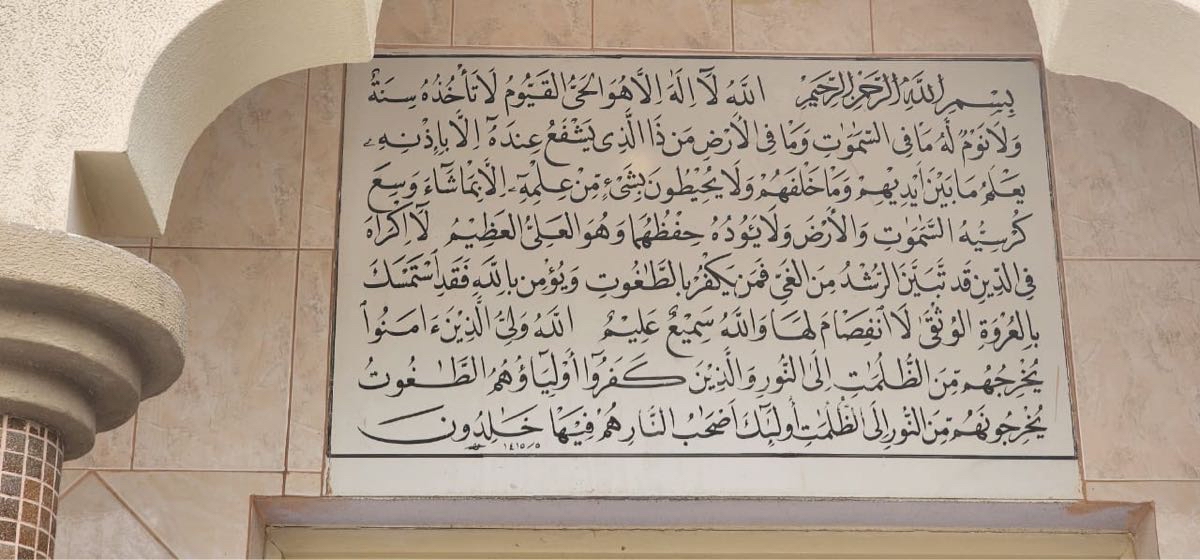 بِسْمِ اللَّهِ الرَّحْمَنِ الرَّحِيمِ اللَّهُ لَآ إِلَٰهَ إِلَّا هُوَ الْحَيُّ الْقَيُّومُ لَا تَأْخُذُهُ سِنَةٌ
وَلَا نَوْمٌ لَّهُ مَا فِي السَّمَٰوَٰتِ وَمَا فِي الْأَرْضِ مَن ذَا الَّذِي يَشْفَعُ عِندَهُ إِلَّا بِإِذْنِهِ
يَعْلَمُ مَا بَيْنَ أَيْدِيهِمْ وَمَا خَلْفَهُمْ وَلَا يُحِيطُونَ بِشَيْءٍ مِّنْ عِلْمِهِ إِلَّا بِمَا شَآءَ وَسِعَ
كُرْسِيُّهُ السَّمَٰوَٰتِ وَالْأَرْضَ وَلَا يَـُٔودُهُ حِفْظُهُمَا وَهُوَ الْعَلِيُّ الْعَظِيمُ لَآ إِكْرَاهَ
فِي الدِّينِ قَد تَّبَيَّنَ الرُّشْدُ مِنَ الْغَيِّ فَمَن يَكْفُرْ بِالطَّٰغُوتِ وَيُؤْمِن بِاللَّهِ فَقَدِ اسْتَمْسَكَ
بِالْعُرْوَةِ الْوُثْقَىٰ لَا انفِصَامَ لَهَا وَاللَّهُ سَمِيعٌ عَلِيمٌ اللَّهُ وَلِيُّ الَّذِينَ ءَامَنُوا
يُخْرِجُهُم مِّنَ الظُّلُمَٰتِ إِلَى النُّورِ وَالَّذِينَ كَفَرُوٓا أَوْلِيَآؤُهُمُ الطَّٰغُوتُ
يُخْرِجُونَهُم مِّنَ النُّورِ إِلَى الظُّلُمَٰتِ أُولَٰٓئِكَ أَصْحَٰبُ النَّارِ هُمْ فِيهَا خَٰلِدُونَ
١٤١٥/٥